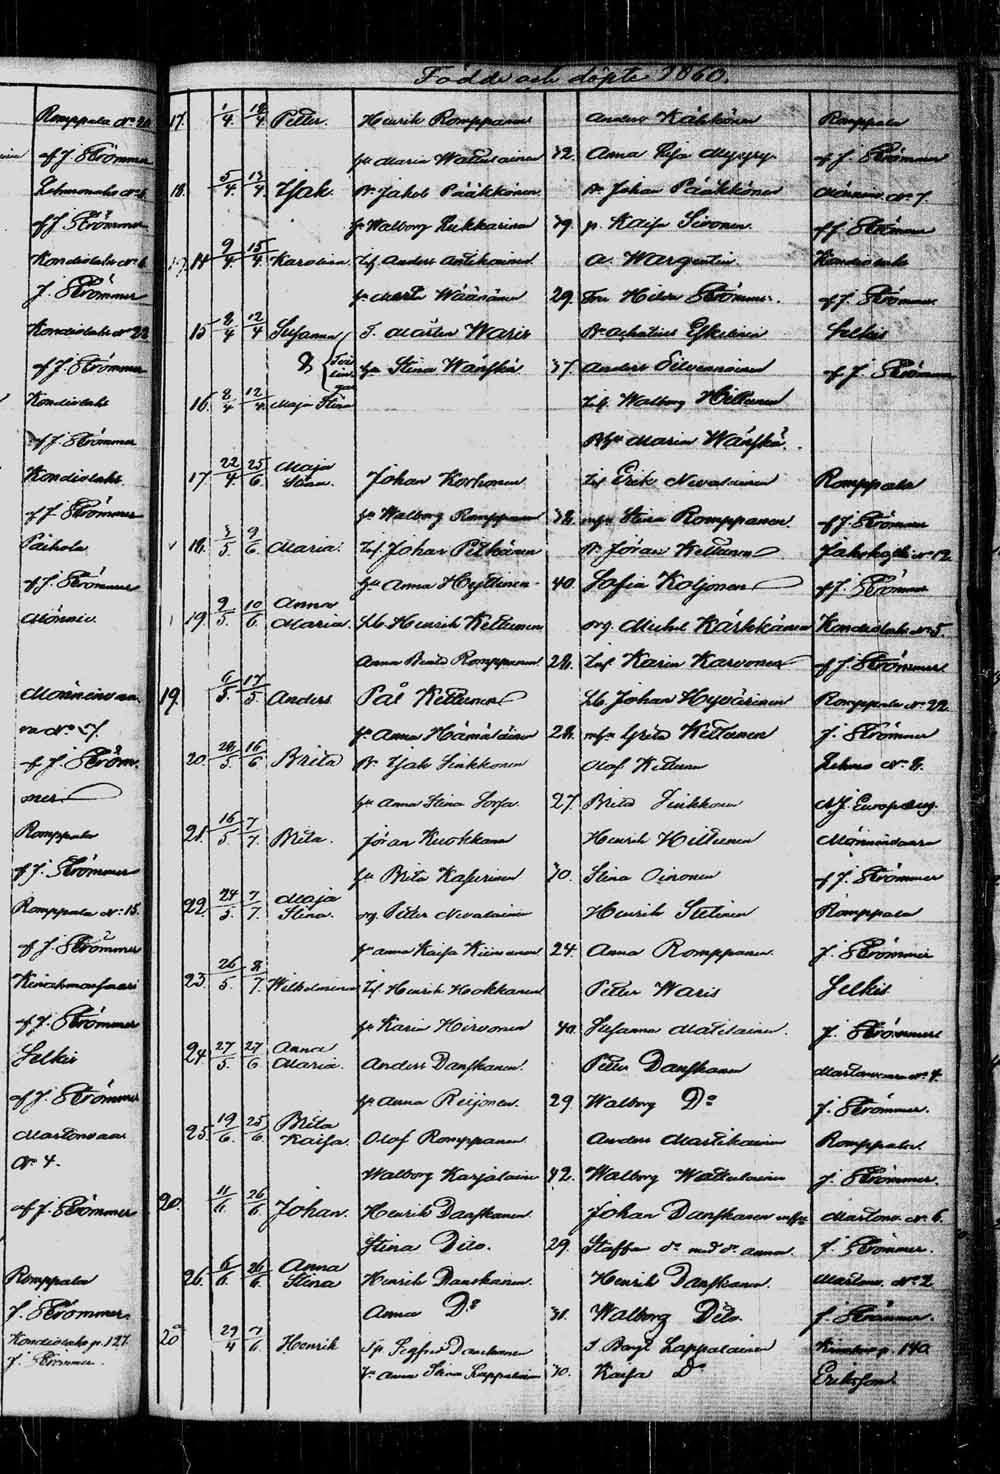 Romppala No 20
af J. Strömmer
af J. Strömmer
Kondiolaks No 6
J. Strömmer
Kondiolaks No 22
af J. Strömmer
Kondiolaks
af J. Strömmer
Kondiolaks
af J. Strömmer
Paihola
af J. Strömmer
Mönni
af J. Ström-
mer
Romppala
af J. Strömmer
Romppala No 15.
af J. Strömmer
af J. Strömmer
Selkis
af J. Strömmer
Martonvaara
No 4.
af J. Strömmer
Romppala
J. Strömmer
Kondiolaks p. 127
J. Strömmer.
Födde och döpte 1860.
17. 1/4 18/4 Petter. Henrik Romppanen Anders Kähkönen Romppala
hu Maria Wattulainen 32. Anna Lisa af J. Strömmer
18. 5/4 13/4 Isak. Jakob Pääkkönen Johan Pääkkönen Mönni No 7.
hu Walborg Lukkarinen 39. Kaisa Sivonen af J. Strömmer
14 9/4 15/4 Karolina Anders Antikainen A. Wargentin Kondiolaks
hu Marta Wäänänen 29. Fru Hilda Strömmer af J. Strömmer
15 8/4 12/4 Susanna Mårten Waris Eskelinen Selkis
& Tvil-
lin-
gar hu Stina Wänskä 37. Anders Silvennoinen af J. Strömmer
16. 8/4 12/4 Maja Stina Walborg Hiltunen
Maria Wänskä.
17 22/4 25/6 Maja
Stina. Johan Korhonen Erik Nevalainen Romppala
hu Walborg Romppanen 32. Stina Romppanen af J. Strömmer
18. 3/5 9/6 Maria. Johan Pitkänen Jöran Kettunen No 12
hu Anna Hyttinen 40. Sofia Koljonen af J. Strömmer
19. 9/5 10/6 Anna
Maria Henrik Kettunen Michel Kärkkänen Kondiolaks No 5
Anna Brita Romppanen 28. Karin Karvonen af J. Strömmer
19. 6/5 17/5 Anders Pål Kettunen Johan Hyvärinen Romppala No 22
hu Anna Hämäläinen 28. Greta Kettunen J. Strömmer
20 28/5 16/6 Brita Isak Sinkkonen Olof Kettunen Lehmo No 8.
hu Anna Stina Sorsa 27. Brita Sinkkonen
21. 16/5 7/7 Brita. Jöran Kuokkanen Henrik Hiltunen Mönninvaara
hu Brita Kasurinen 30. Stina Oinonen af J. Strömmer
22 24/5 7/7 Maja
Stina. Petter Nevalainen Henrik Romppala
hu Anna Kaisa 24. Anna Romppanen J. Strömmer
23. 26/5 8/7 Wilhelmina Henrik Hokkanen Petter Waris Selkis
hu Karin Hirvonen 40. Susanna Matilainen J. Strömmer
24 27/5 27/6 Anna
Maria. Anders Danskanen. Petter Danskanen Martonvaara No 4.
hu Anna Reijonen. 29 Walborg Do J. Strömmer.
25. 19/6 25/6 Brita
Kaisa. Olof Romppanen Anders Martikainen Romppala.
Walborg Karjalainen 42. Walborg Wattulainen J. Strömmer.
20. 11/6 26/6 Johan. Henrik Danskanen Johan Danskanen Marton. No 6.
Stina Dito. 29. Staffan do med do Anna J. Strömmer.
26. 6/6 26/6 Anna
Stina Henrik Danskanen. Henrik Danskanen. Marton. No 2
Anna Do 31. Walborg Dito. J. Strömmer.
20 29/4 7/6 Henrik Sigfrid Danskanen Bengt Lappalainen p. 140
hu Anna Stina Lappalainen 30. Kaisa Do Erikson.